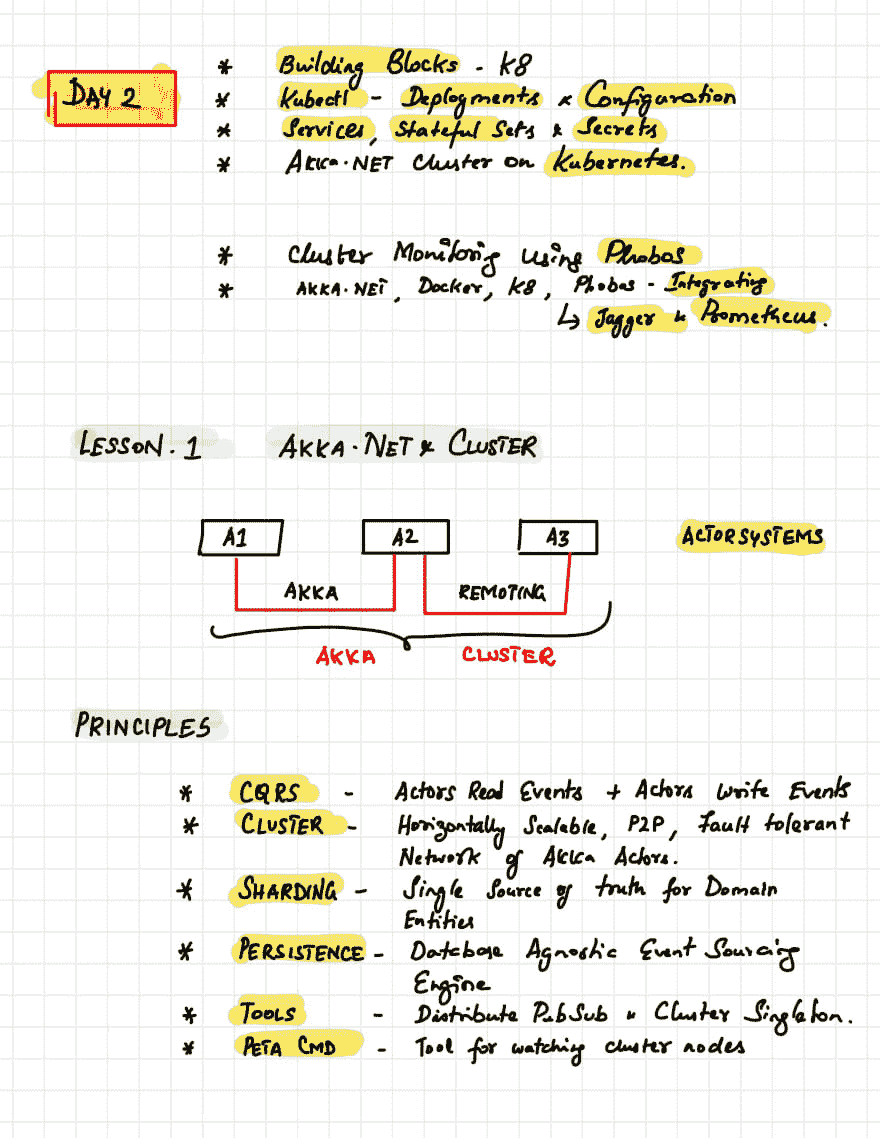 DAY 2
* Building Blocks - K8
* Kubectl - Deployments & Configuration
* Services, Stateful Sets & Secrets
* AKKA.NET Cluster on Kubernetes.
* Cluster Monitoring using Phobos
* AKKA.NET, Docker, K8, Phobos - Integrating
↳ Jagger & Prometheus.
LESSON.1 AKKA.NET & CLUSTER
A1 A2 A3 ACTORSYSTEMS
AKKA REMOTING
AKKA CLUSTER
PRINCIPLES
* CQRS - Actors Read Events + Actors Write Events
* CLUSTER - Horizontally Scalable, P2P, Fault tolerant
Network of Akka Actors.
* SHARDING - Single Source of truth for Domain
Entities
* PERSISTENCE - Database Agnostic Event Sourcing
Engine
* TOOLS - Distribute PubSub & Cluster Singleton.
* PETA CMD - Tool for watching cluster nodes